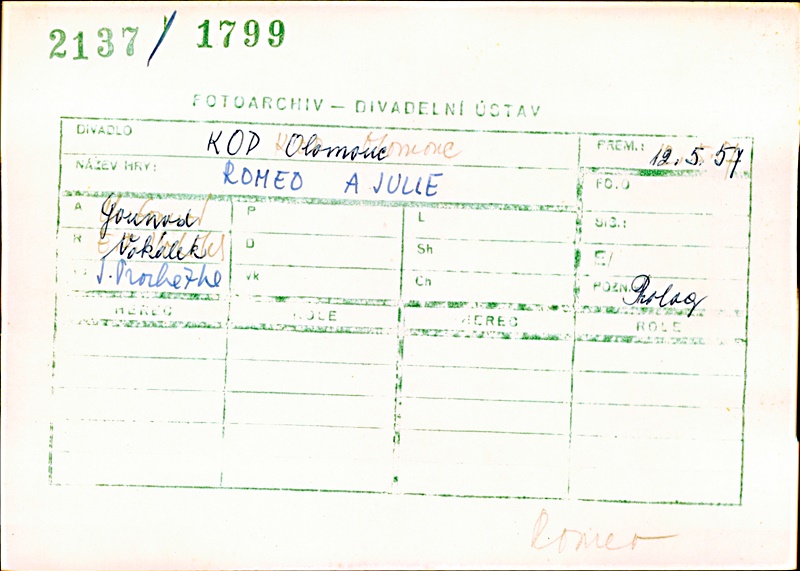 2137/1799
FOTOARCHIV – DIVADELNÍ ÚSTAV
DIVADLO KOD Olomouc PREM.: 12.5.57
NÁZEV HRY: ROMEO A JULIE FOTO
A Gounod P L SIG.:
R Vokálek D Sh
J. Procházka vk Ch POZN. Prolog
HEREC ROLE HEREC ROLE
Romeo